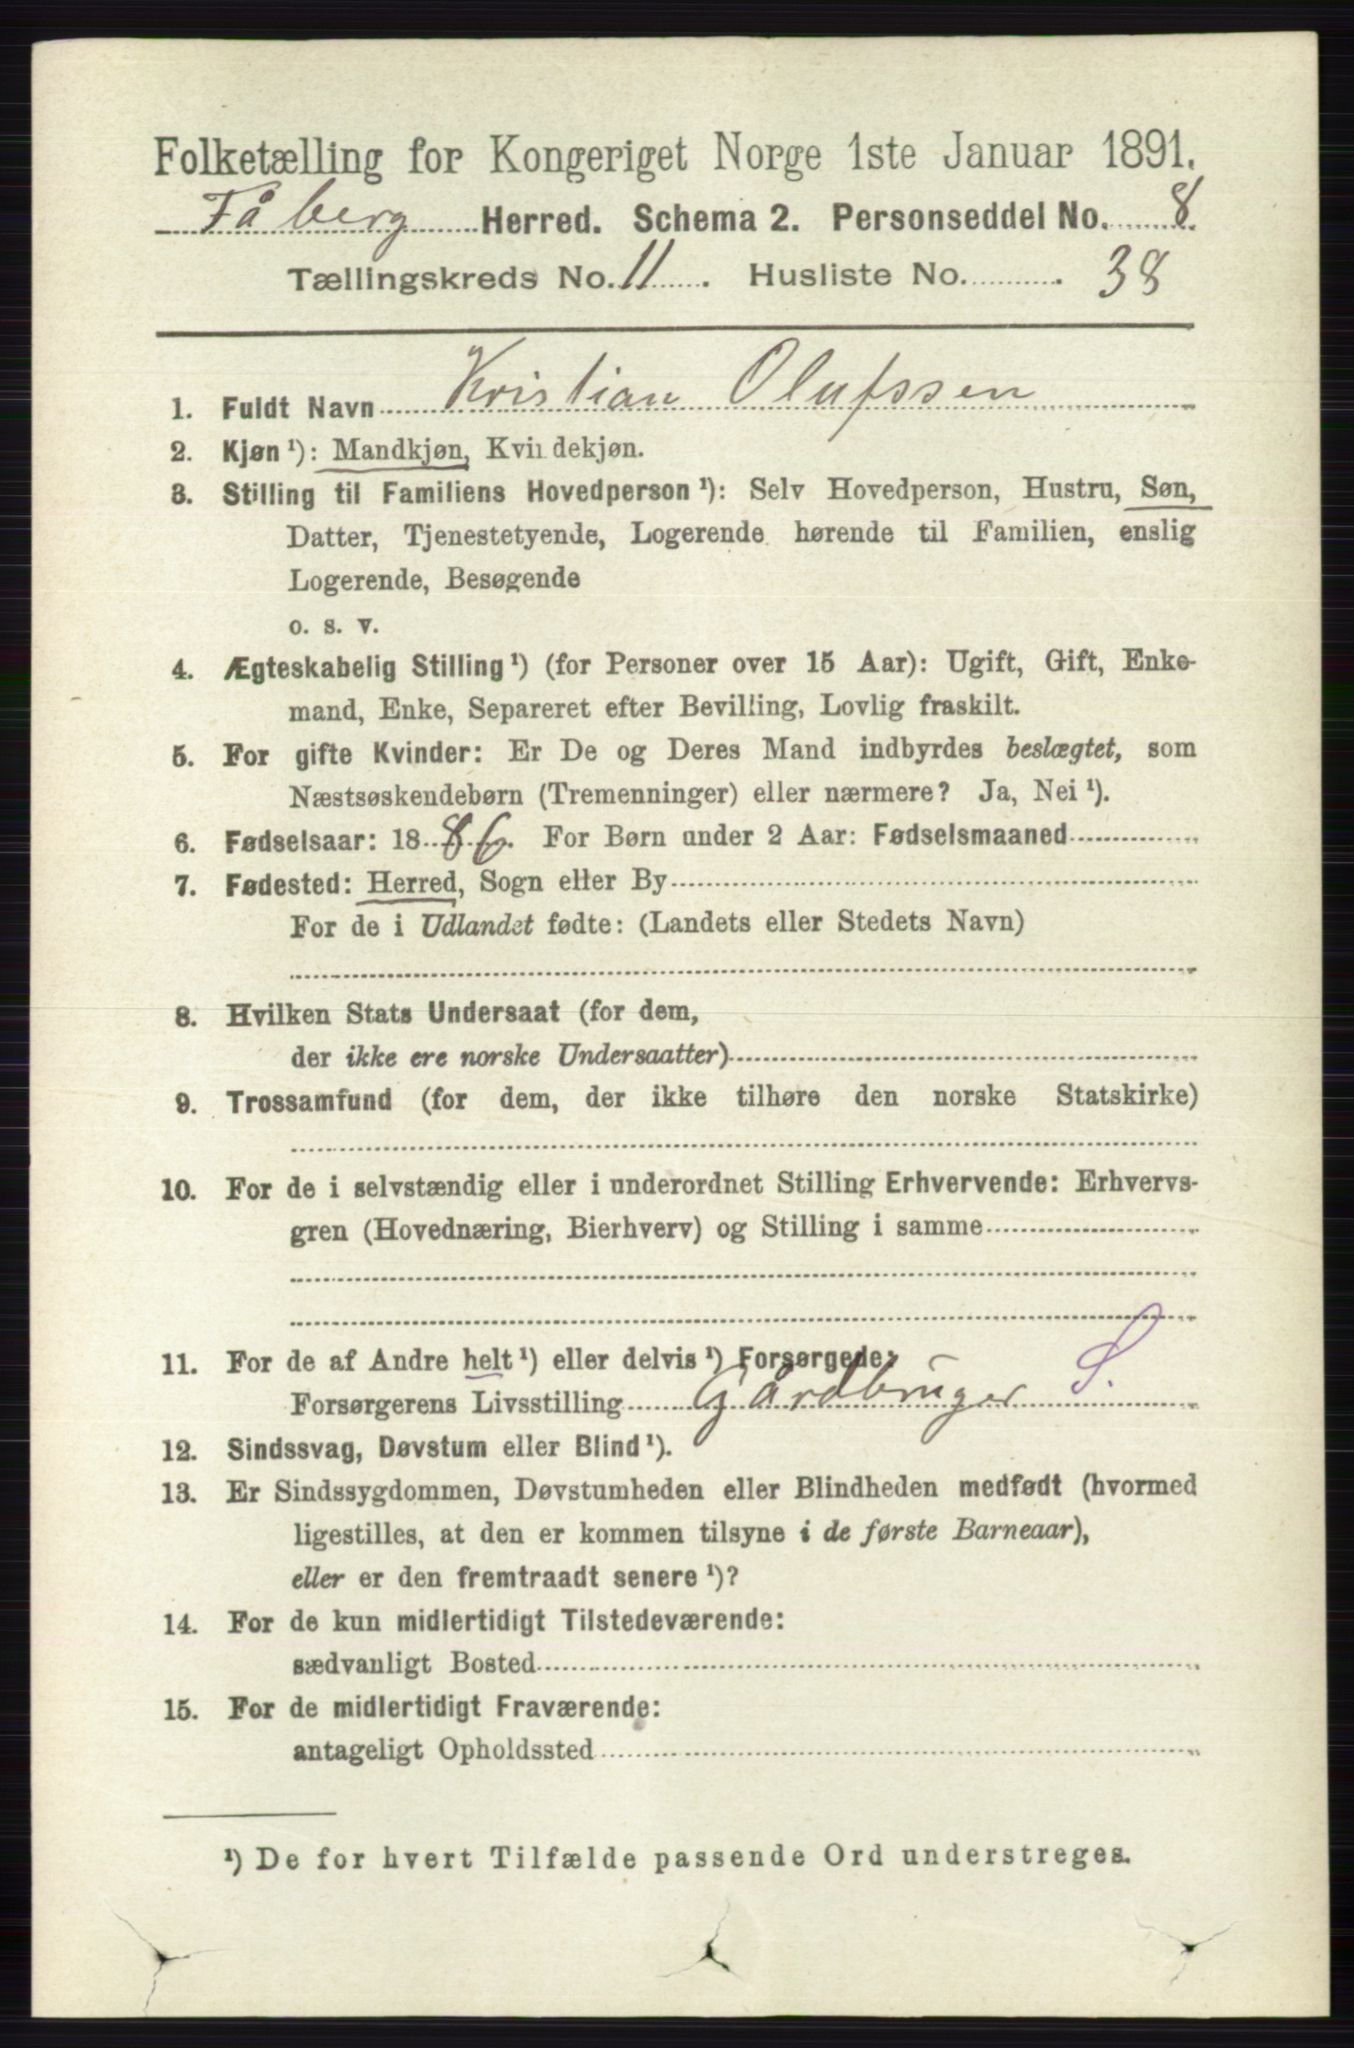 Folketælling for Kongeriget Norge 1ste Januar 1891.
Fåberg Herred. Schema 2. Personseddel No. 8.
Tællingskreds No. 11. Husliste No. 38
1. Fuldt Navn Kristian Olufssen
2. Kjøn ¹): Mandkjøn, Kvindekjøn.
3. Stilling til Familiens Hovedperson ¹): Selv Hovedperson, Hustru, Søn,
Datter, Tjenestetyende, Logerende hørende til Familien, enslig
Logerende, Besøgende
o. s. v.
4. Ægteskabelig Stilling ¹) (for Personer over 15 Aar): Ugift, Gift, Enke-
mand, Enke, Separeret efter Bevilling, Lovlig fraskilt.
5. For gifte Kvinder: Er De og Deres Mand indbyrdes beslægtet, som
Næstsøskendebørn (Tremenninger) eller nærmere? Ja, Nei ¹).
6. Fødselsaar: 1886. For Børn under 2 Aar: Fødselsmaaned
7. Fødested: Herred, Sogn eller By
For de i Udlandet fødte: (Landets eller Stedets Navn)
8. Hvilken Stats Undersaat (for dem,
der ikke ere norske Undersaatter)
9. Trossamfund (for dem, der ikke tilhøre den norske Statskirke)
10. For de i selvstændig eller i underordnet Stilling Erhvervende: Erhvervs-
gren (Hovednæring, Bierhverv) og Stilling i samme
11. For de af Andre helt ¹) eller delvis ¹) Forsørgede:
Forsørgerens Livsstilling Gårdbruger S.
12. Sindssvag, Døvstum eller Blind ¹).
13. Er Sindssygdommen, Døvstumheden eller Blindheden medfødt (hvormed
ligestilles, at den er kommen tilsyne i de første Barneaar),
eller er den fremtraadt senere ¹)?
14. For de kun midlertidigt Tilstedeværende:
sædvanligt Bosted
15. For de midlertidigt Fraværende:
antageligt Opholdssted
¹) De for hvert Tilfælde passende Ord understreges.